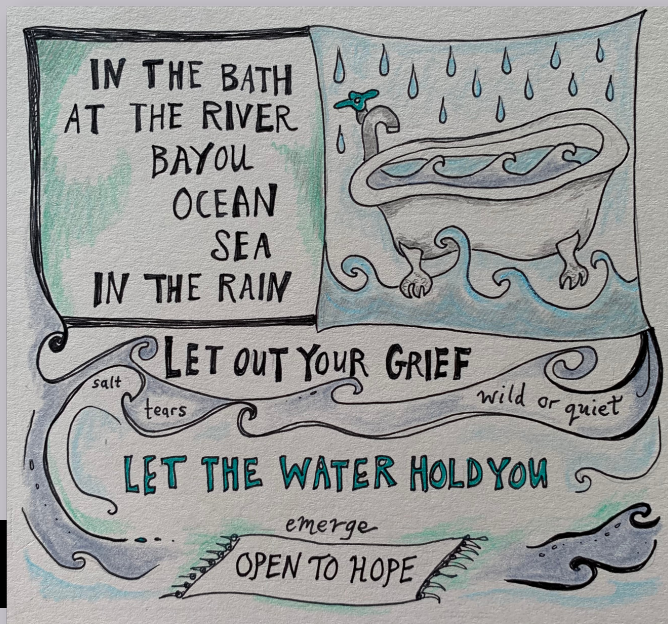 IN THE BATH
AT THE RIVER
BAYOU
OCEAN
SEA
IN THE RAIN
LET OUT YOUR GRIEF
salt
tears
wild or quiet
LET THE WATER HOLD YOU
emerge
OPEN TO HOPE